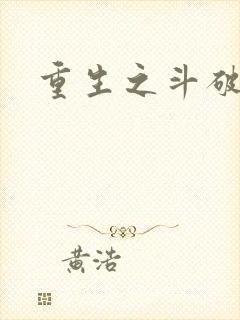 重生之斗破
黄浩